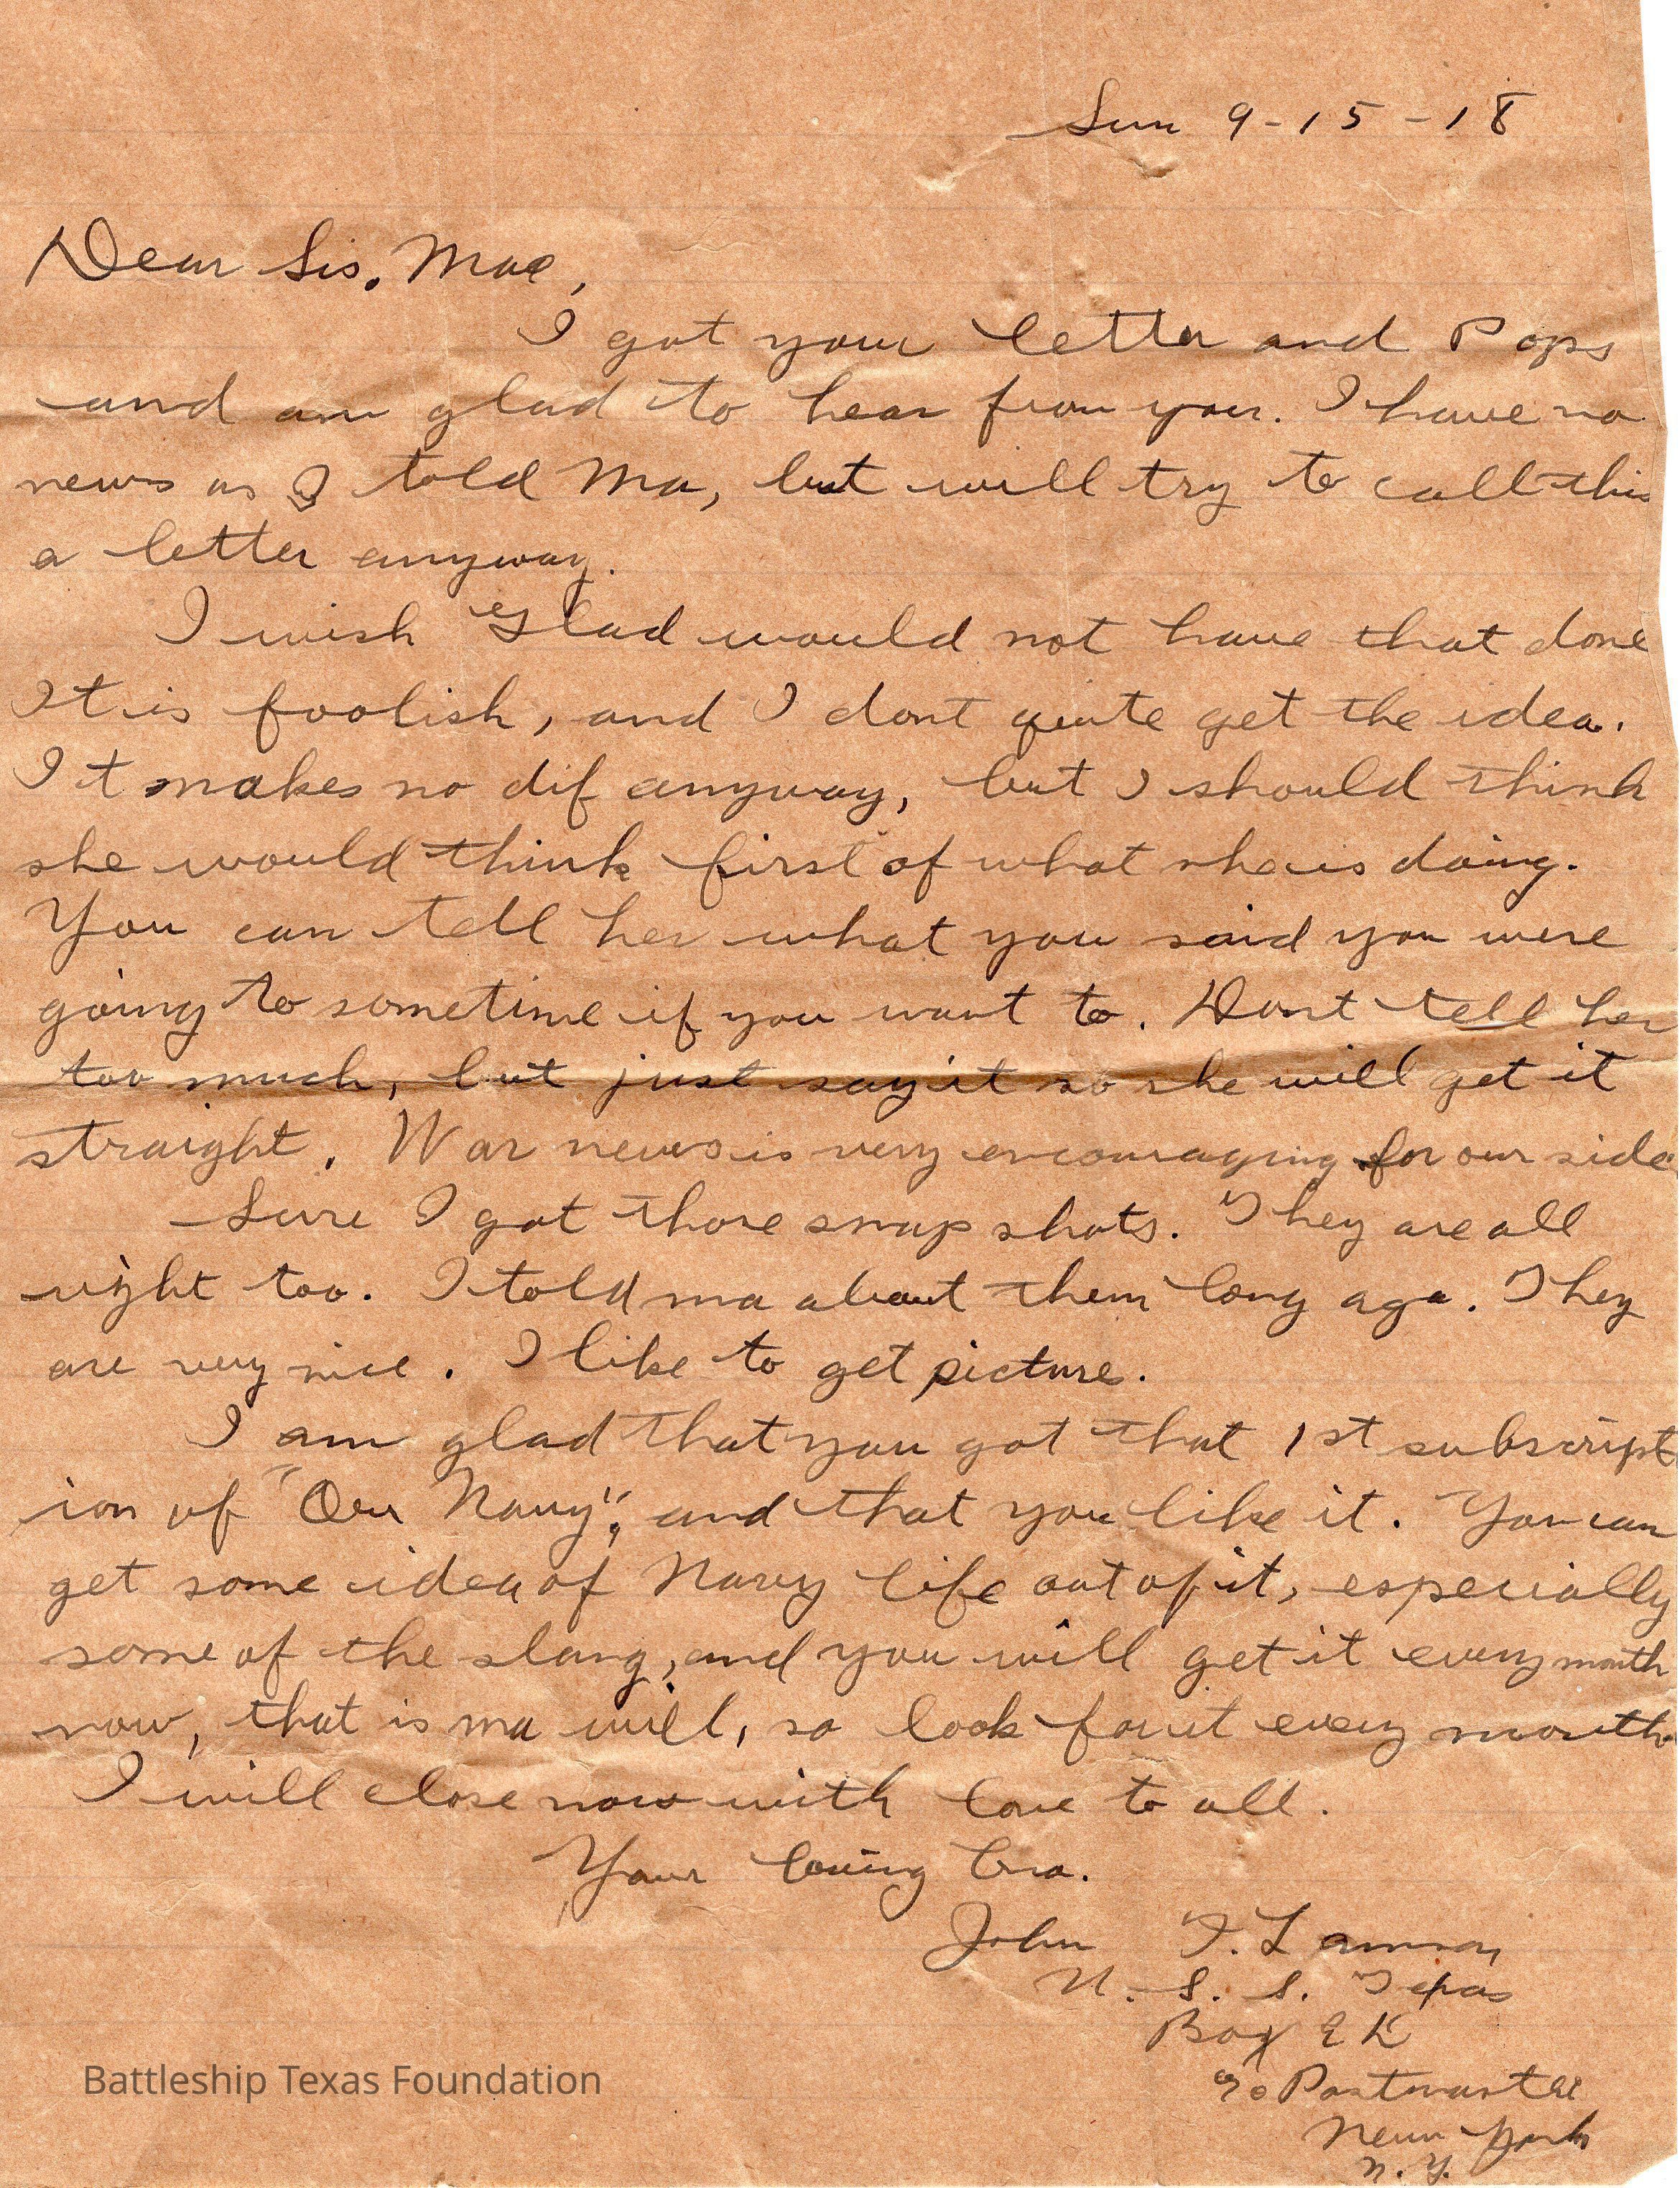 Sun 9-15-18
Dear Sis. Mae,
I got your letter and Pops
and am glad to hear from you. I have no
news as I told Ma, but will try to call this
a letter anyway.
I wish Glad would not have that done
It is foolish, and I dont quite get the idea.
It makes no dif anyway, but I should think
she would think first of what she is doing.
You can tell her what you said you were
going to sometime if you want to. Dont tell her
too much, but just say it so she will get it
straight. War news is very encouraging for our side
Sure I got those snap shots. They are all
right too. I told ma about them long ago. They
are very nice. I like to get picture.
I am glad that you got that 1st subscript
ion of "Our Navy", and that you like it. You can
get some idea of Navy life out of it, especially
some of the slang, and you will get it every month
now, that is ma will, so look for it every month.
I will close now with love to all.
Your loving bro.
John
U. S. S. Texas
Box E K
c/o Postmaster
New York
N. Y.
Battleship Texas Foundation